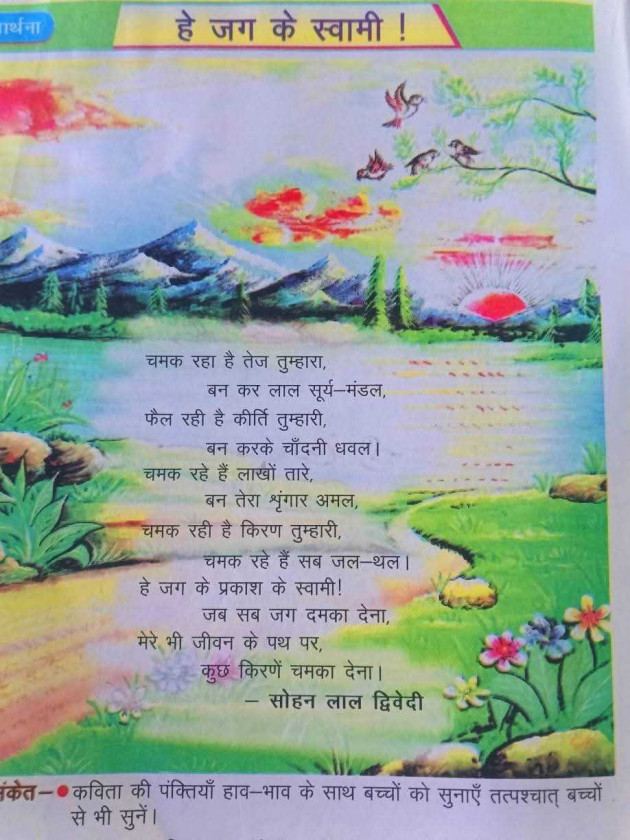 हे जग के स्वामी !
चमक रहा है तेज तुम्हारा,
बन कर लाल सूर्य–मंडल,
फैल रही है कीर्ति तुम्हारी,
बन करके चाँदनी धवल।
चमक रहे हैं लाखों तारे,
बन तेरा शृंगार अमल,
चमक रही है किरण तुम्हारी,
चमक रहे हैं सब जल–थल।
हे जग के प्रकाश के स्वामी!
जब सब जग दमका देना,
मेरे भी जीवन के पथ पर,
कुछ किरणें चमका देना।
– सोहन लाल द्विवेदी
कविता की पंक्तियाँ हाव–भाव के साथ बच्चों को सुनाएँ तत्पश्चात् बच्चों
से भी सुनें।